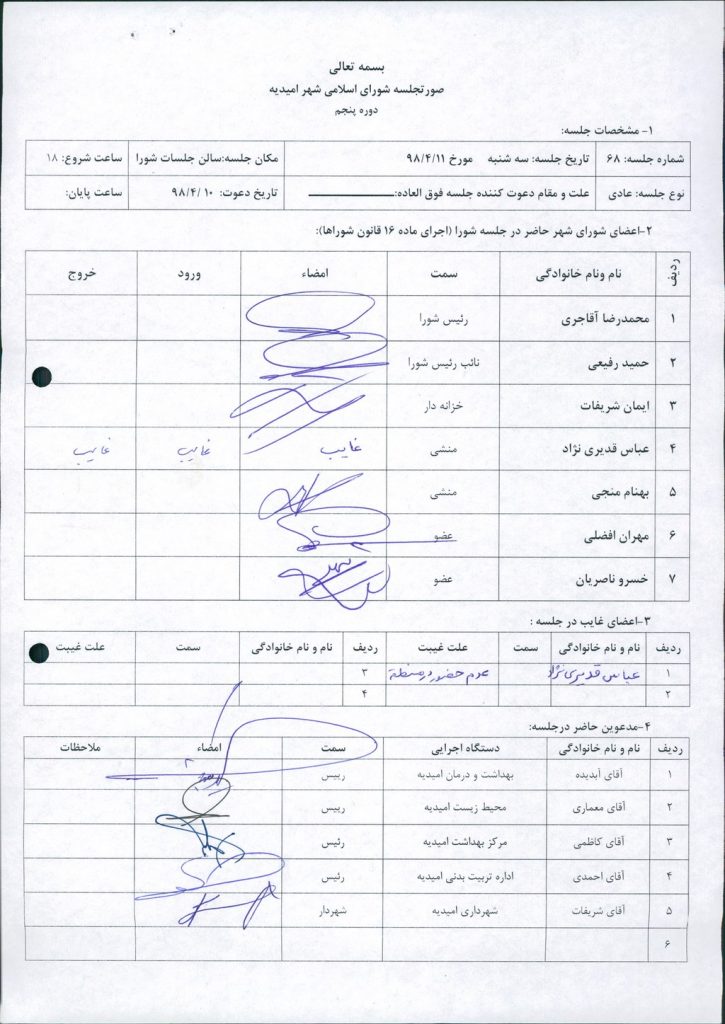 بسمه تعالی
صورتجلسه شورای اسلامی شهر امیدیه
دوره پنجم
۱- مشخصات جلسه:
شماره جلسه: ۶۸ تاریخ جلسه: سه شنبه مورخ ۹۸/۴/۱۱ مکان جلسه:سالن جلسات شورا ساعت شروع: ۱۸
نوع جلسه: عادی علت و مقام دعوت کننده جلسه فوق العاده: تاریخ دعوت: ۹۸/۴/۱۰ ساعت پایان:
۲-اعضای شورای شهر حاضر در جلسه شورا (اجرای ماده ۱۶ قانون شوراها):
ردیف نام ونام خانوادگی سمت امضاء ورود خروج
۱ محمدرضا آقاجری رئیس شورا
۲ حمید رفیعی نائب رئیس شورا
۳ ایمان شریفات خزانه دار
۴ عباس قدیری نژاد منشی غایب غایب غایب
۵ بهنام منجی منشی
۶ مهران افضلی عضو
۷ خسرو ناصریان عضو
۳-اعضای غایب در جلسه :
ردیف نام و نام خانوادگی سمت علت غیبت ردیف نام و نام خانوادگی سمت علت غیبت
۱ عباس قدیری نژاد عدم حضور در منطقه ۳
۲ ۴
۴-مدعوین حاضر درجلسه:
ردیف نام و نام خانوادگی دستگاه اجرایی سمت امضاء ملاحظات
۱ آقای آبدیده بهداشت و درمان امیدیه رییس
۲ آقای معماری محیط زیست امیدیه رییس
۳ آقای کاظمی مرکز بهداشت امیدیه رئیس
۴ آقای احمدی اداره تربیت بدنی امیدیه رئیس
۵ آقای شریفات شهرداری امیدیه شهردار
۶